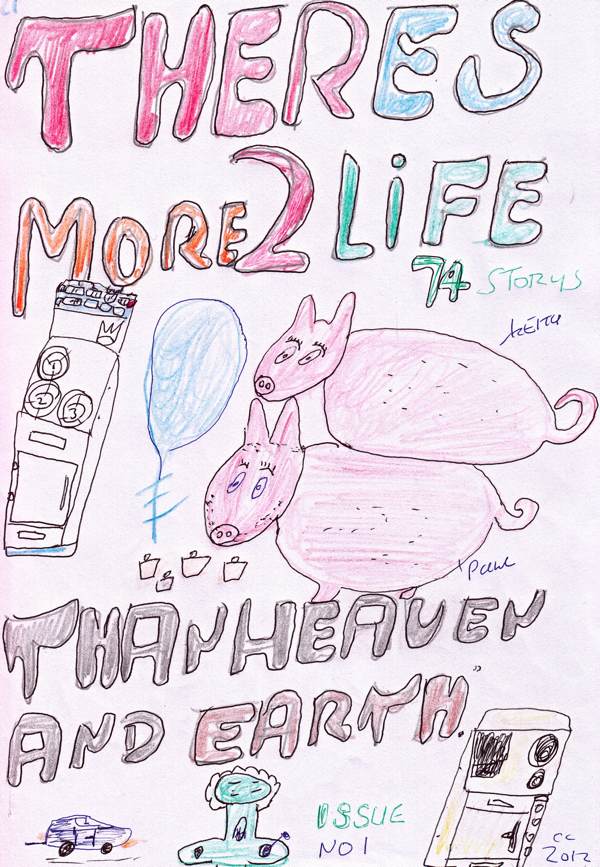 THERES
MORE 2 LIFE
74 STORYS
KEITH
1
2 3
+ Paul
THAN HEAVEN
AND EARTH."
ISSUE
NO 1
CC
2012